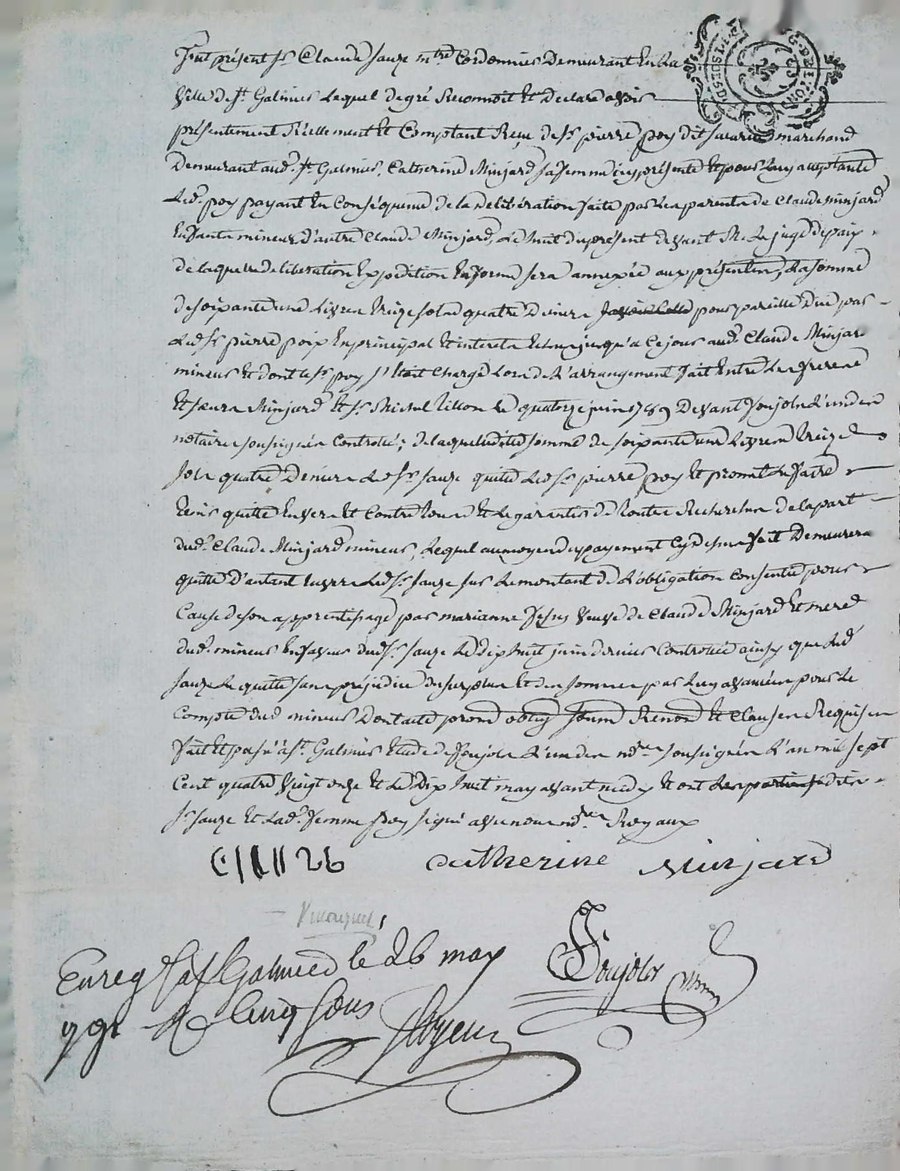 Fut présent Sr Claude Sauze mtre Cordonnier Demeurant En la
Ville de St Galmier Lequel de gré Reconnoit Et Declare avoir
présentement Réellement Et Comptant Reçu de Sr pierre poy dit marchand
Demeurant aud. St Galmier, Catherine Minjard sa femme icy présente Et pour Luy acceptante
Led. poy payant En Conséquence de la deliberation faite par Les parents de Claude minjard
Enfant mineur d'autre Claude Minjard, Le huit du présent devant Mr Le juge de paix
de laquelle deliberation Expedition En forme sera annexée aux présentes, La somme
de soixante une Livres treize sols quatre Deniers pour pareille Due par
Led. Sr pierre poix En principal Et interets Echus jusqu'a Ce jour aud. Claude Minjard
mineur Et dont le Sr poy s'étoit Chargé Lors de L'arrangement fait Entre Les freres
Et soeurs Minjard Et Sr Michel tillon Le quatorze juin 1789 Devant Foujols L'un des
notaires soussignés Controllé; de laquelle ditte somme de soixante une Livres treize
sols quatre Deniers Led. Sr Sauze quitte Led. Sr pierre poy Et promet Le faire
tenir quitte Envers Et Contre tous Et Le garantir de toutes Recherches de la part
dud. Claude Minjard mineur, Lequel au moyen du payement Cy dessus fait Demeurera
quitte D'autant Envers Led. Sr Sauze sur Le montant de L'obligation Consentie pour
Cause de son apprentissage par marianne Veuve de Claude Minjard Et mere
dud. mineur En faveur dud. Sr Sauze Le dix huit juin dernier Controllée ainsy que Led.
Sauze Le quitte sans préjudice du surplus Et des sommes par Luy avancées pour Le
Compte dud. mineur Dont acte prom oblig soum Renon Et Clauses Requises
fait Et passé a St Galmier Etude de Foujols L'un des nores soussignés L'an mil sept
Cent quatre Vingt onze Et Le Dix huit may avant midy Et ont
Sr Sauze Et Lad. femme poy signé avec nous nores Royaux
catherine Minjard
Foujols
Enreg. a St Galmier le 26 may
1791 R. Cinq sous